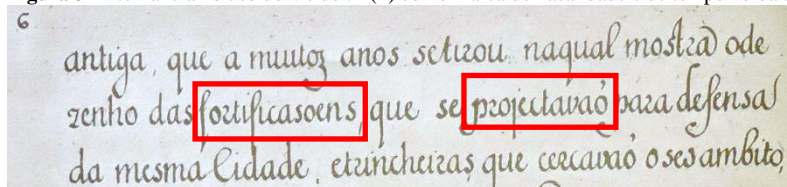 6
antiga, que a muitoz anos setirou naqual mostra) ode
zenho das fortificasoens, que se projectavaõ para defensa
da mesma Cidade, etrincheiras que cercavaõ o seo ambito,